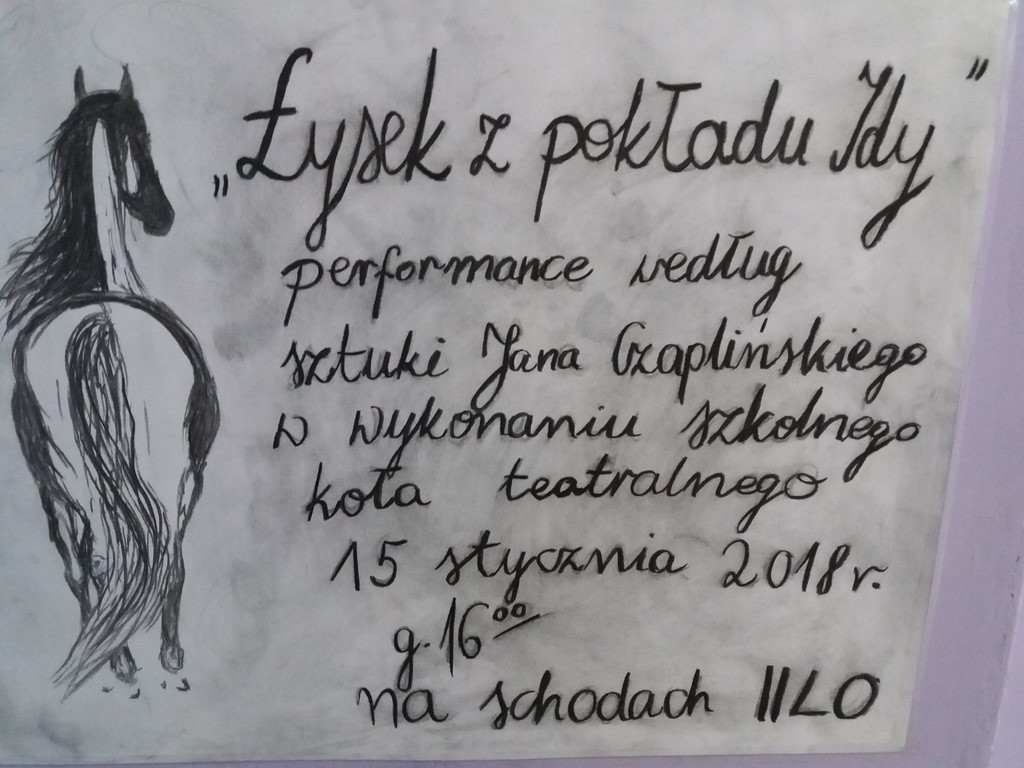 „Łysek z pokładu Idy"
performance według
sztuki Jana Czaplińskiego
w wykonaniu szkolnego
koła teatralnego
15 stycznia 2018 r.
g. 16⁰⁰
na schodach II LO